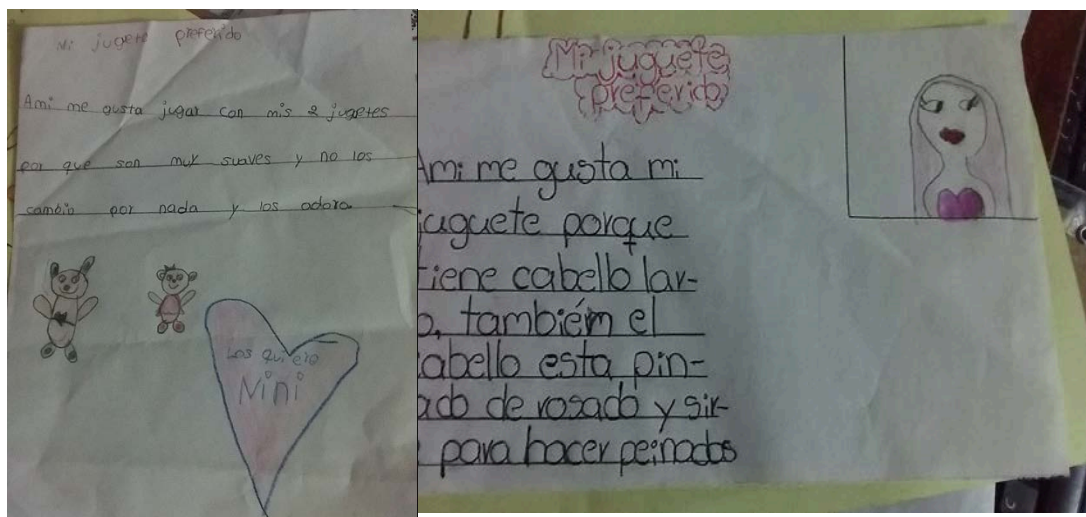 Mi jugete preferido
Ami me gusta jugar con mis 2 jugetes
por que son muy suaves y no los
cambio por nada y los adoro
Los quiero
Nini
Mi juguete
preferido
Ami me gusta mi
juguete porque
tiene cabello lar-
o, también el
abello esta pin-
ado de rosado y sir-
e para hacer peinados